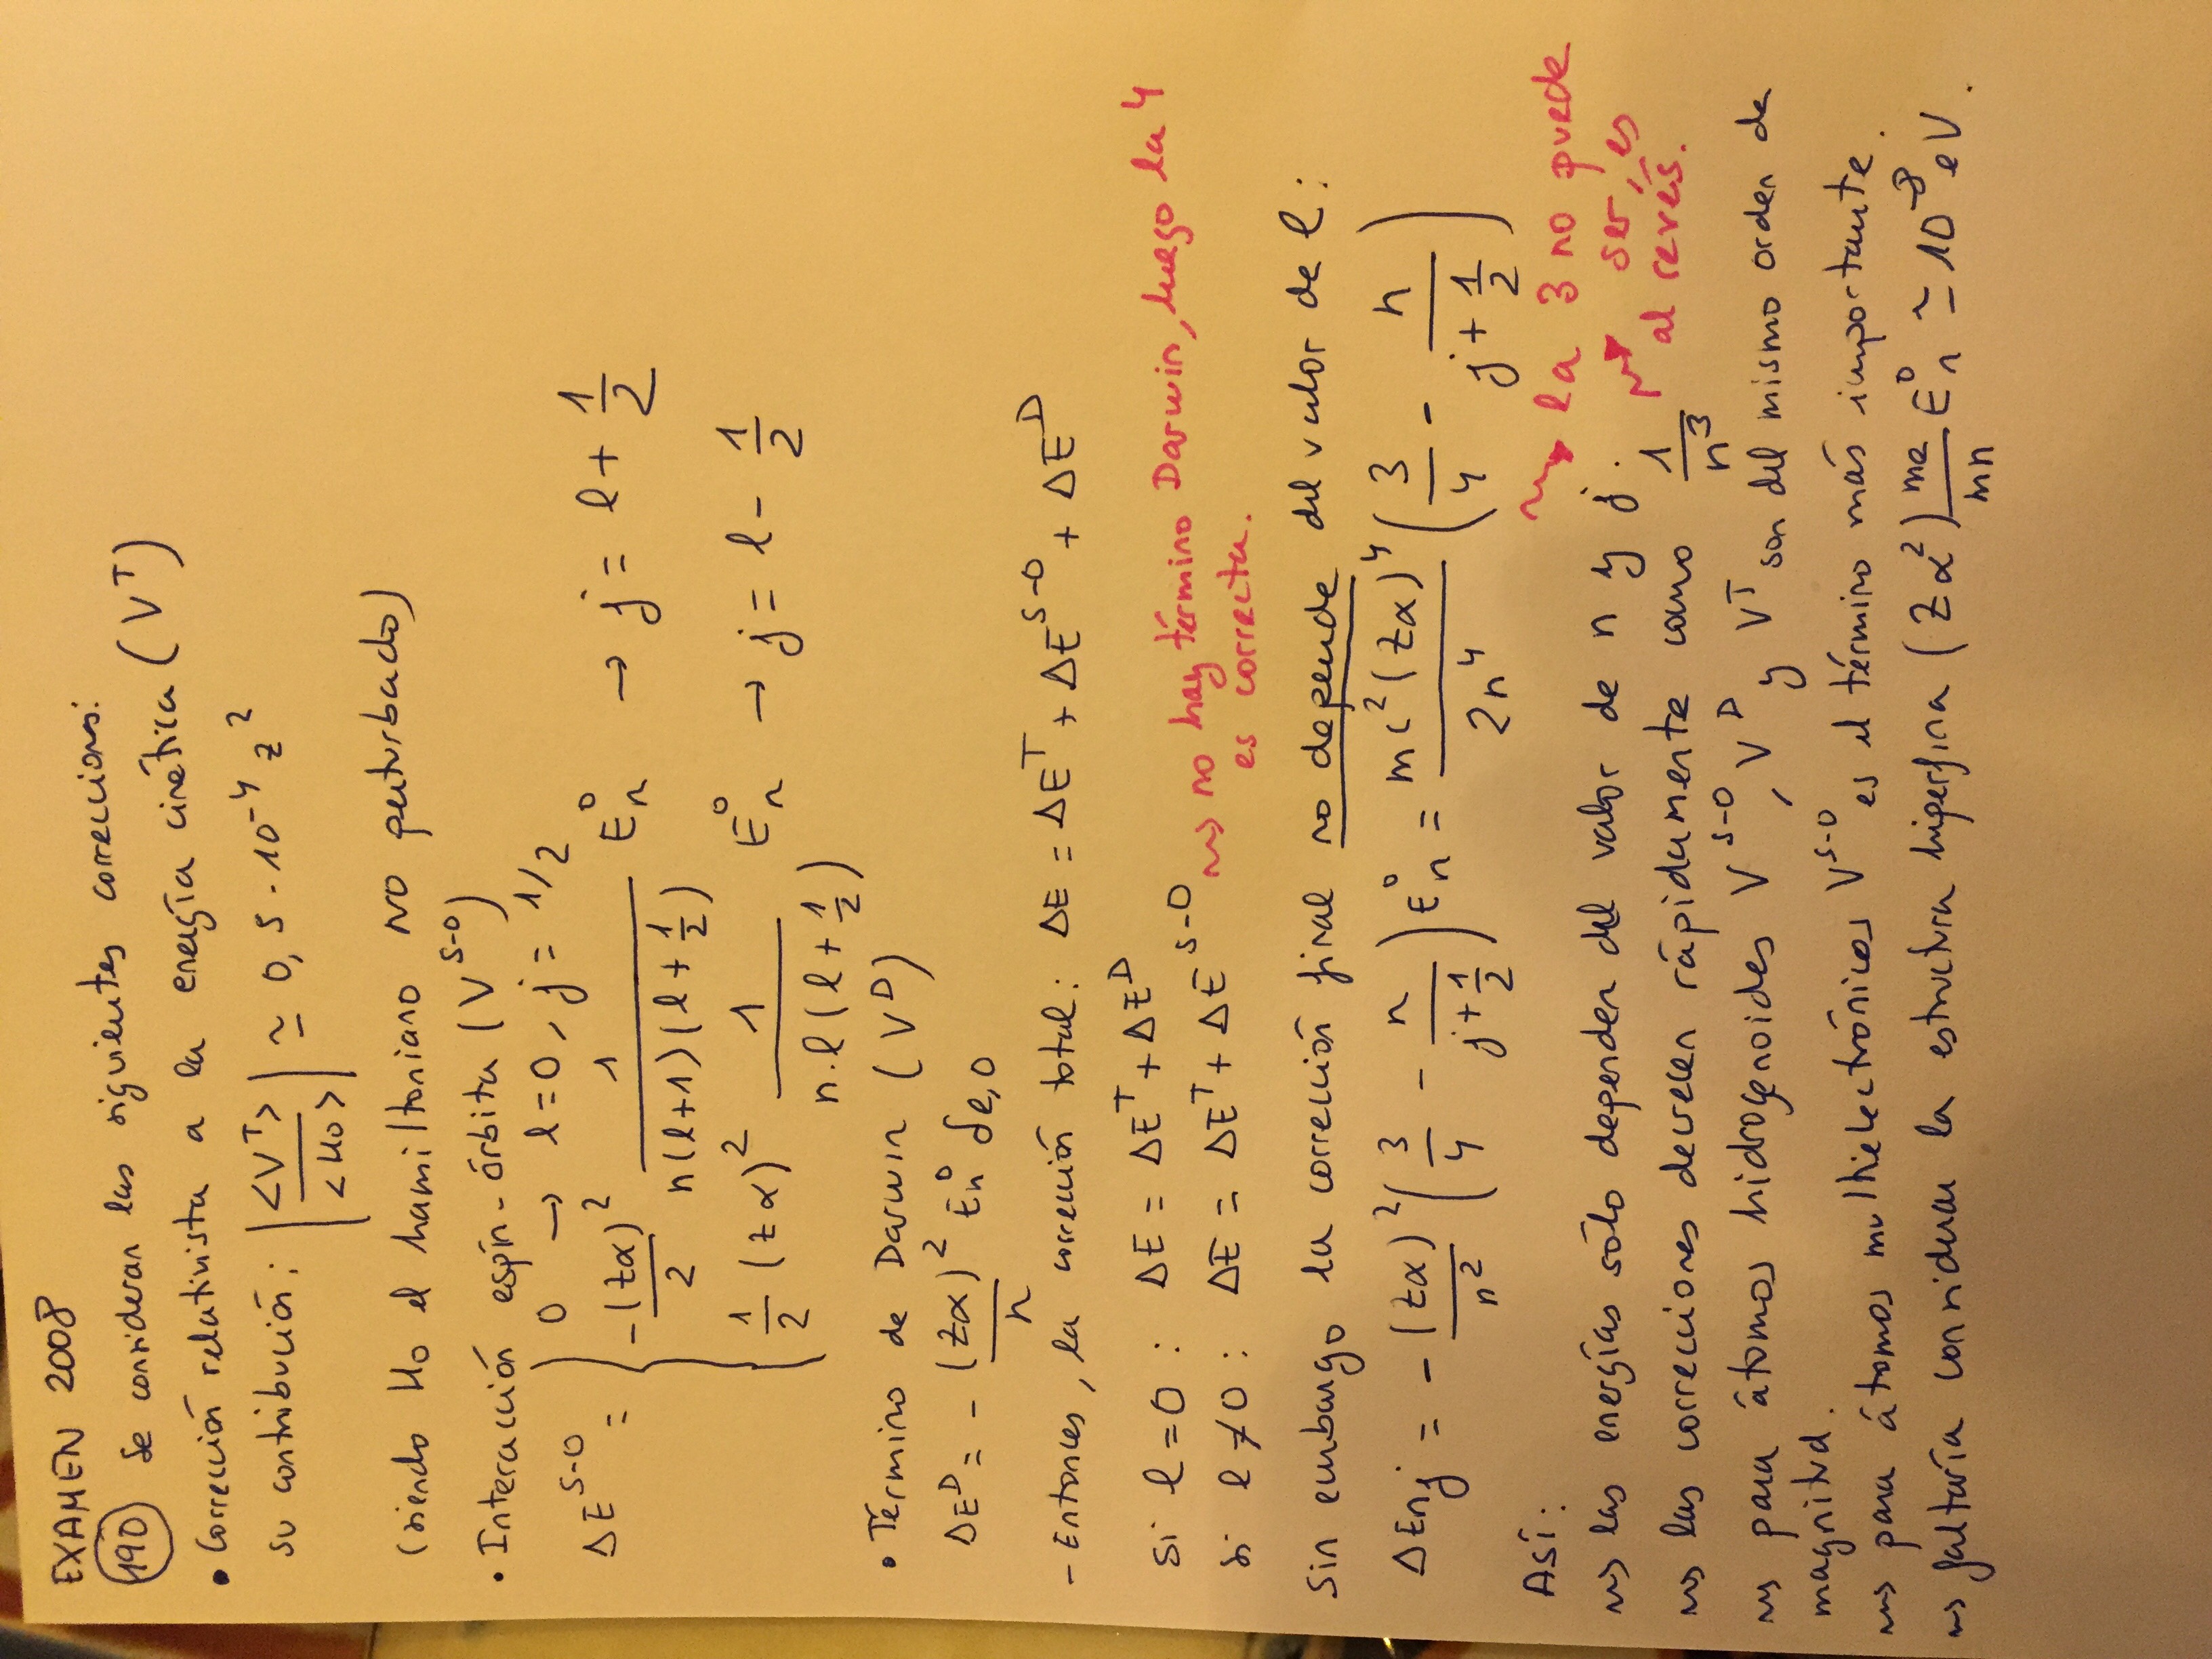 EXAMEN 2008
190 Se consideran las siguientes correcciones:
• Corrección relativista a la energía cinética (V^T)
su contribución: |<V^T>/<H0>| ≃ 0,5 · 10^-4 z^2
(siendo H0 el hamiltoniano no perturbado)
• Interacción espín-órbita (V^S-O)
ΔE^S-O = { 0 → l=0, j=1/2
-(zα)^2/2 1/(n(l+1)(l+1/2)) E_n^0 → j = l + 1/2
1/2 (zα)^2 1/(n·l(l+1/2)) E_n^0 → j = l - 1/2
• Término de Darwin (V^D)
ΔE^D = -(zα)^2/n E_n^0 δ_l,0
- Entonces, la corrección total: ΔE = ΔE^T + ΔE^S-O + ΔE^D
Si l=0: ΔE = ΔE^T + ΔE^D
Si l≠0: ΔE = ΔE^T + ΔE^S-O → no hay término Darwin, luego la 4
es correcta.
Sin embargo la corrección final no depende del valor de l:
ΔE_nj = -(zα)^2/n^2 (3/4 - n/(j+1/2)) E_n^0 = mc^2(zα)^4/2n^4 (3/4 - n/(j+1/2))
Así: → la 3 no puede
→ las energías sólo dependen del valor de n y j. ser, es
→ las correcciones decrecen rápidamente como 1/n^3 → al revés.
→ para átomos hidrogenoides V^S-O, V^D y V^T son del mismo orden de
magnitud.
→ para átomos multielectrónicos V^S-O es el término más importante.
→ faltaría considerar la estructura hiperfina (zα^2) me/mn E_n^0 ≃ 10^-8 eV.